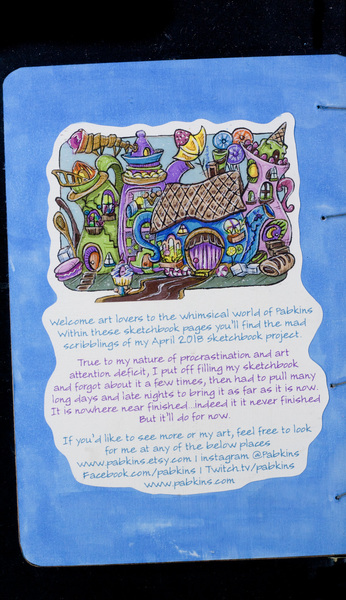 Welcome art lovers to the whimsical world of Pabkins
Within these sketchbook pages you'll find the mad
scribblings of my April 2018 sketchbook project.
True to my nature of procrastination and art
attention deficit, I put off filling my sketchbook
and forgot about it a few times, then had to pull many
long days and late nights to bring it as far as it is now.
It is nowhere near finished...indeed it it never finished
But it'll do for now.
If you'd like to see more or my art, feel free to look
for me at any of the below places
www.pabkins.etsy.com | instagram @Pabkins
Facebook.com/pabkins | Twitch.tv/pabkins
www.pabkins.com